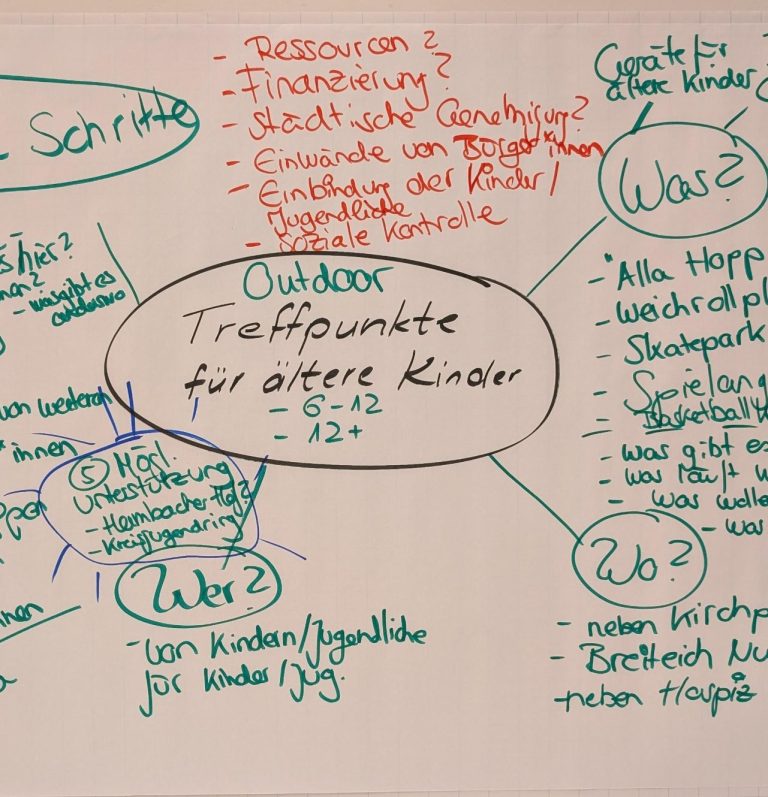 - Ressourcen?
- Finanzierung?
- Städtische Genehmigung?
- Einwände von Bürger*innen
- Einbindung der Kinder/
Jugendliche
- Soziale Kontrolle
Schritte
Geräte für
ältere Kinder
Was?
hier?
- was gibt es
Outdoor
Treffpunkte
für ältere Kinder
- 6-12
- 12+
- "Alla Hopp
- Weichrollpl
- Skatepark
- Spielang
- Basketball
- was gibt es
- was läuft w
- was wolle
- was
von
*innen
⑤ Mögl.
Unterstützung
- Heimbacher Hof?
- Kreisjugendring
Wer?
- von Kindern/Jugendliche
für Kinder/Jug.
Wo?
- neben Kirchp
- Breiteich Nu
- neben Hospiz
nnen